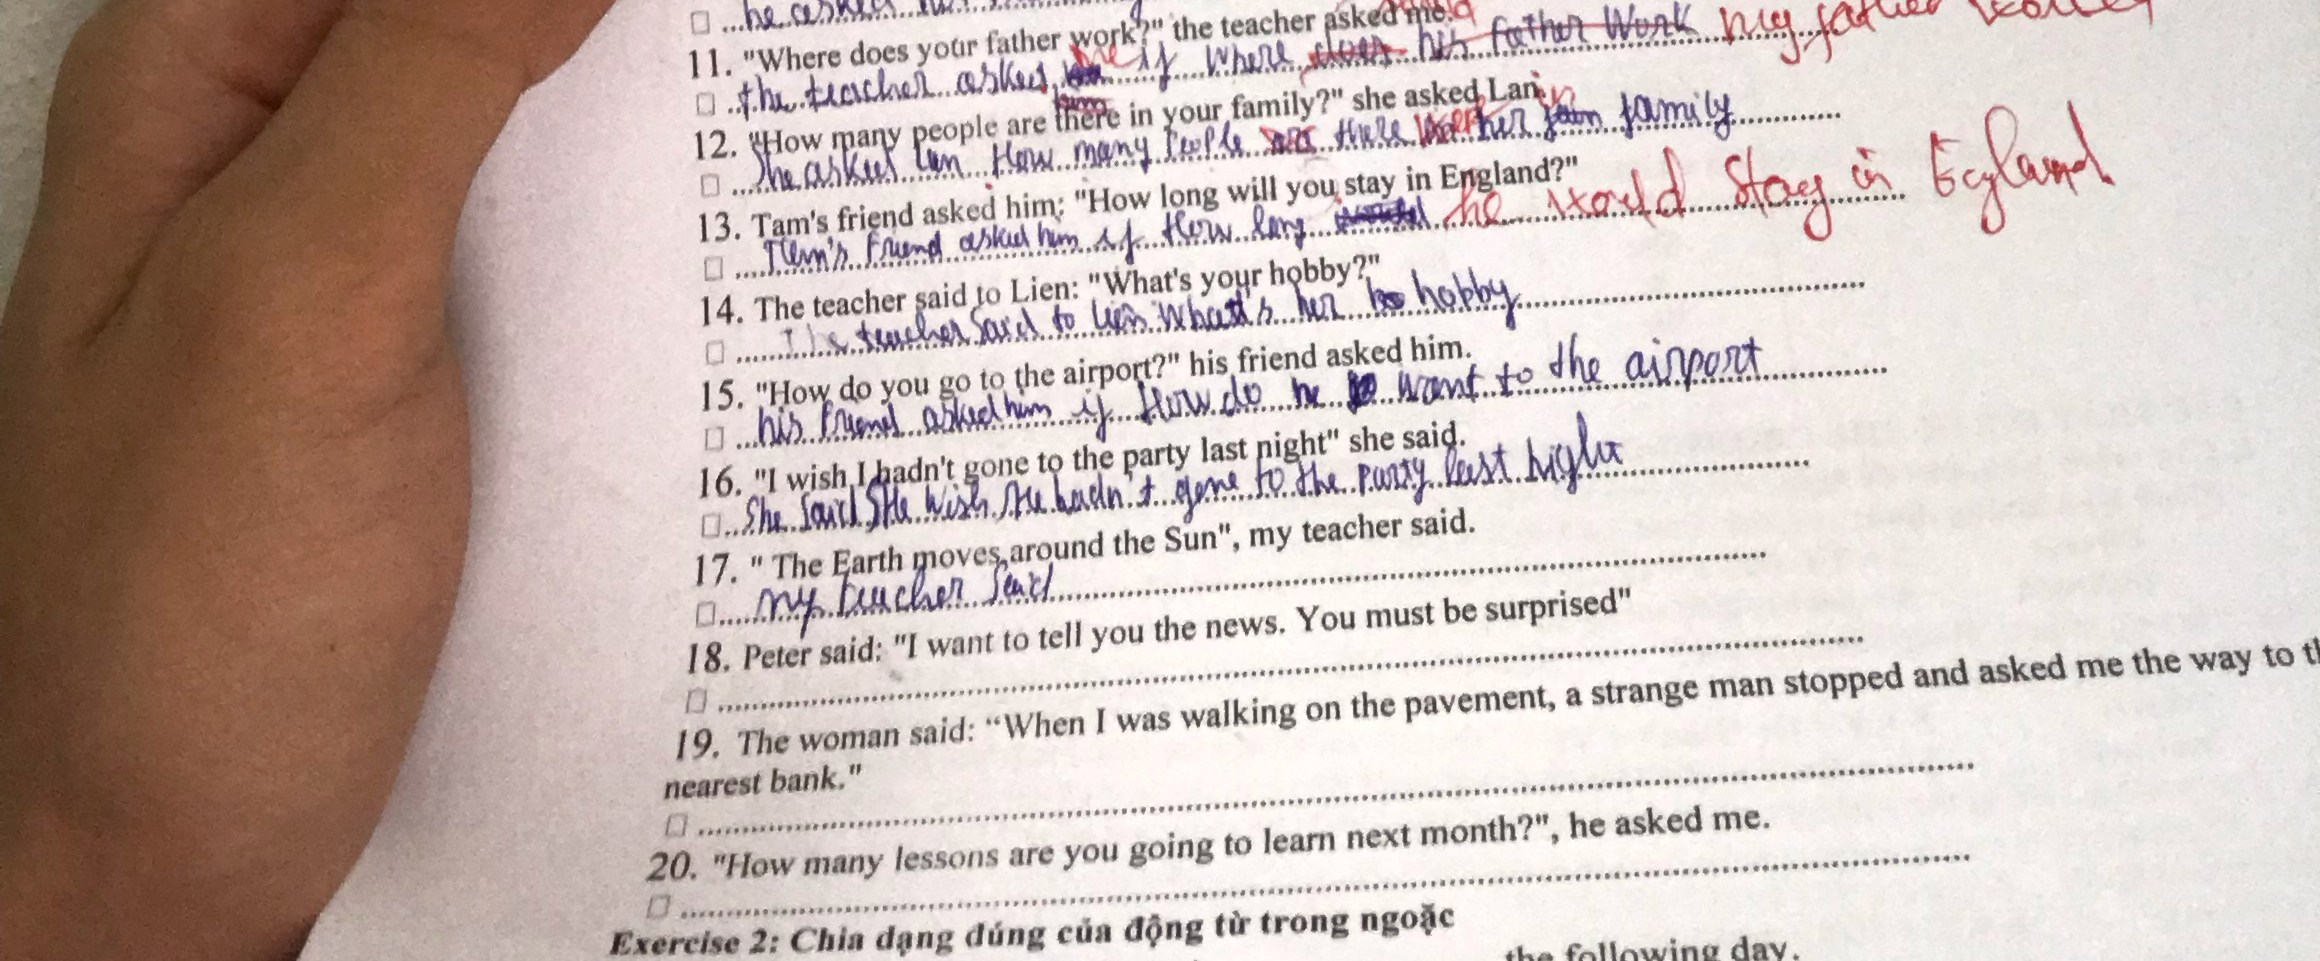 he asked
11. "Where does your father work?" the teacher asked me.
the teacher asked me if where does his father work my father worked
12. "How many people are there in your family?" she asked Lan.
She asked Lan How many people are there were in her family
13. Tam's friend asked him: "How long will you stay in England?"
Tam's friend asked him if How long would he would stay in England
14. The teacher said to Lien: "What's your hobby?"
The teacher said to Lien What's her hobby
15. "How do you go to the airport?" his friend asked him.
his friend asked him if How do he want to the airport
16. "I wish I hadn't gone to the party last night" she said.
She said She wish She hadn't gone to the party last night
17. " The Earth moves around the Sun", my teacher said.
my teacher said
18. Peter said: "I want to tell you the news. You must be surprised"
19. The woman said: “When I was walking on the pavement, a strange man stopped and asked me the way to
nearest bank."
20. "How many lessons are you going to learn next month?", he asked me.
Exercise 2: Chia dạng đúng của động từ trong ngoặc
the following day.